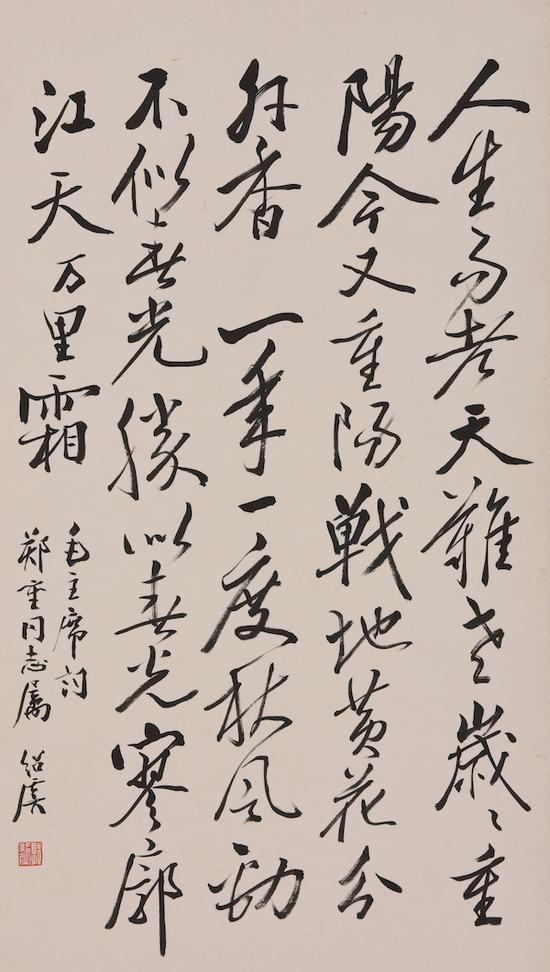 人生易老天難老歲〻重
陽今又重陽戰地黄花分
外香 一年一度秋风勁
不似春光勝以春光寥廓
江天万里霜
毛主席词
郑重同志属 绍虞